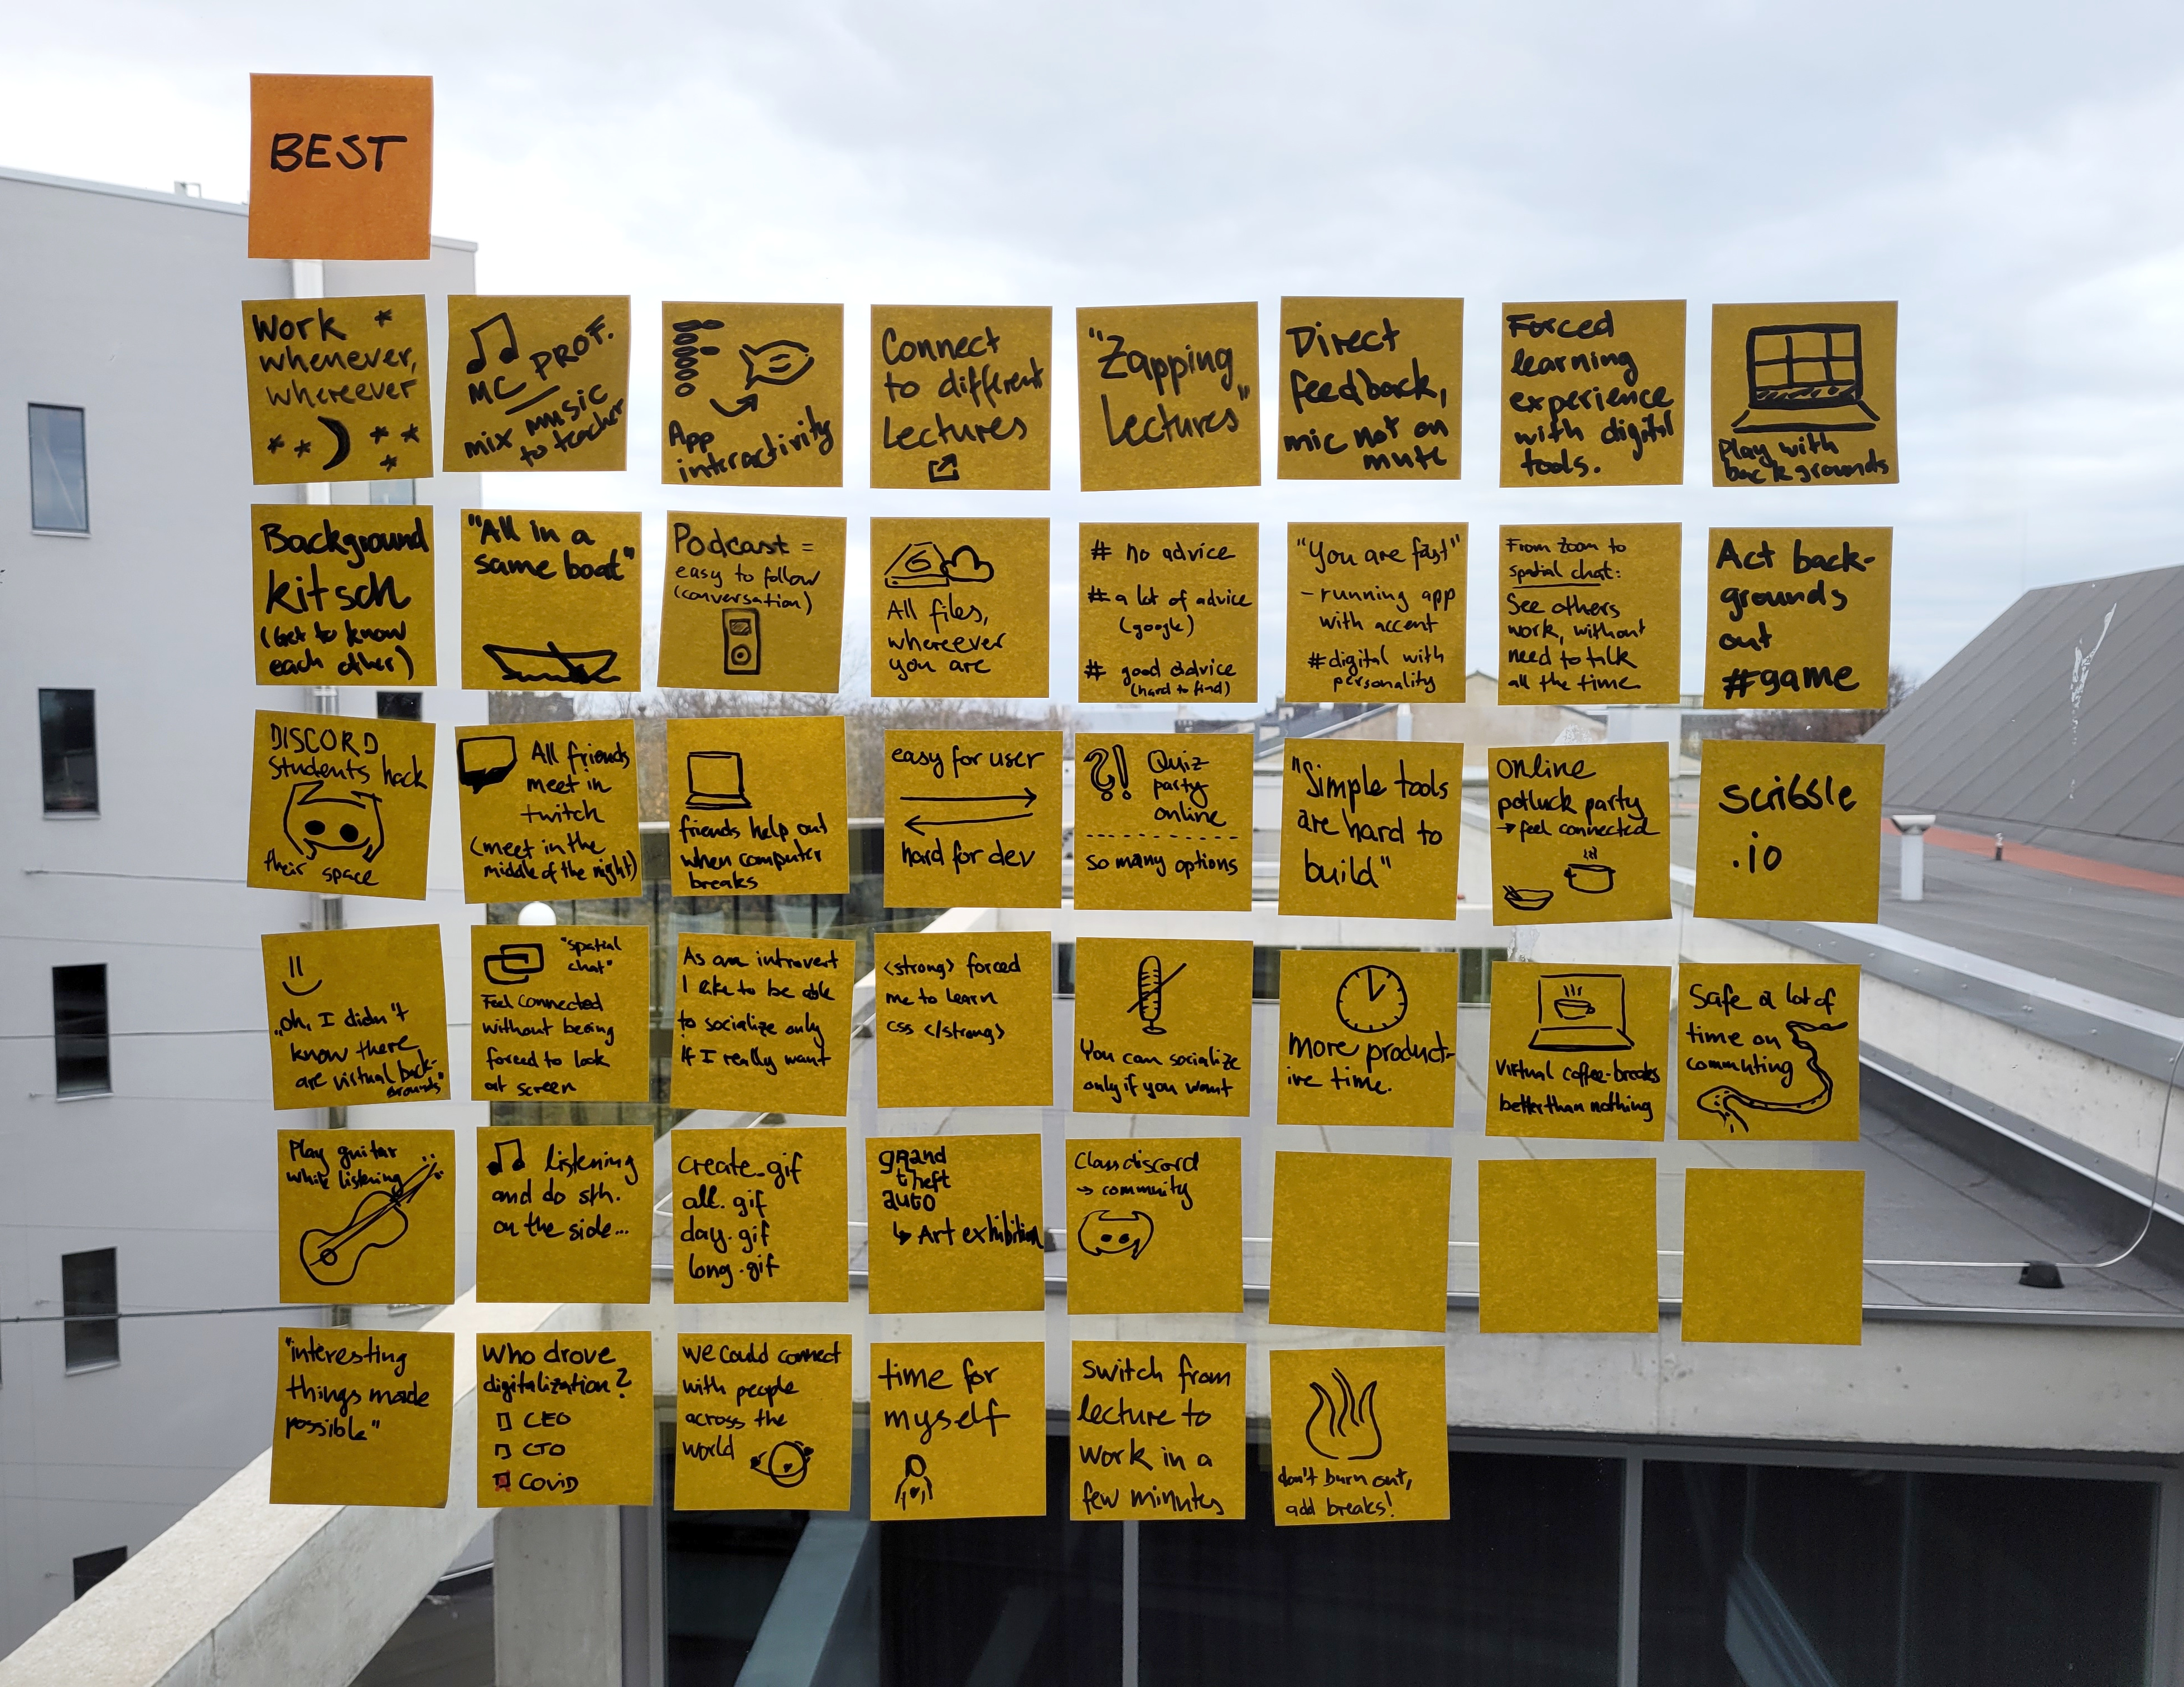 BEST
Work
whenever,
whereever
MC PROF.
mix music
to teacher
App
interactivity
Connect
to different
Lectures
"Zapping
Lectures"
Direct
feedback,
mic not on
mute
Forced
learning
experience
with digital
tools.
Play with
backgrounds
Background
kitsch
(Get to know
each other)
"All in a
same boat"
Podcast =
easy to follow
(conversation)
All files,
whereever
you are
# no advice
# a lot of advice
(google)
# good advice
(hard to find)
"You are fast"
- running app
with accent
# digital with
personality
From Zoom to
spatial chat:
See others
work, without
need to talk
all the time
Act back-
grounds
out
#game
DISCORD
Students hack
their space
All friends
meet in
twitch
(meet in the
middle of the night)
friends help out
when computer
breaks
easy for user
hard for dev
?! Quiz
party
online
so many options
"Simple tools
are hard to
build"
Online
potluck party
→ feel connected
scribble
.io
"oh, I didn't
know there
are virtual back-
grounds"
"spatial
chat"
Feel connected
without being
forced to look
at screen
As an introvert
I like to be able
to socialize only
if I really want
<strong> forced
me to learn
css </strong>
You can socialize
only if you want
more product-
ive time.
Virtual coffee-breaks
better than nothing
Safe a lot of
time on
commuting
Play guitar
while listening
listening
and do sth.
on the side...
create.gif
all.gif
day.gif
long.gif
grand
theft
auto
↳ Art exhibition
Class discord
→ community
"interesting
things made
possible"
Who drove
digitalization?
CEO
CTO
Covid
we could connect
with people
across the
world
time for
myself
switch from
lecture to
work in a
few minutes
don't burn out,
add breaks!